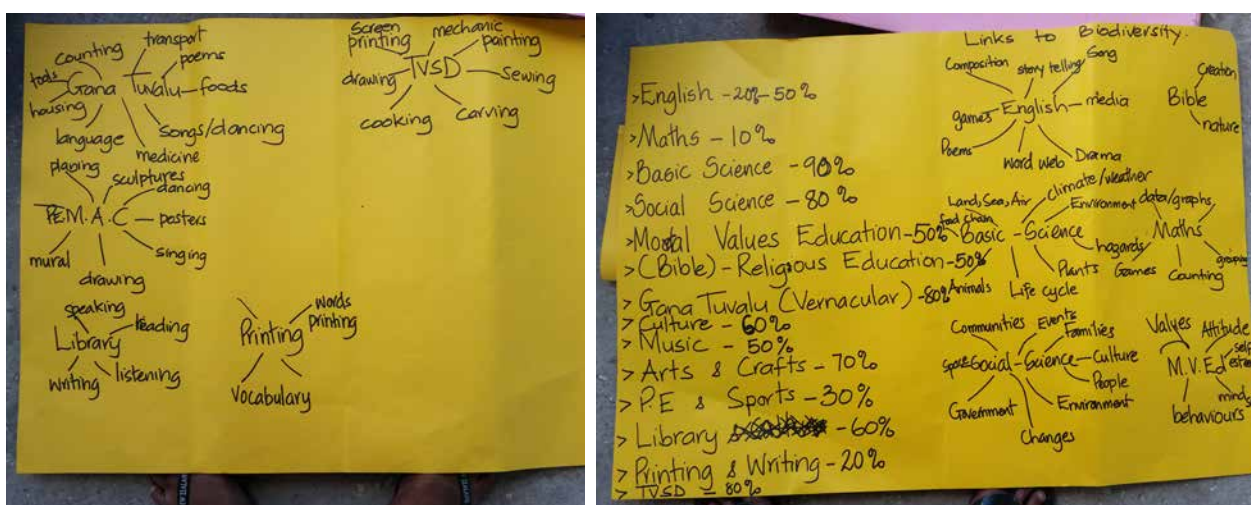 counting
transport
tools
Gana Tuvalu
poems
foods
housing
language
songs/dancing
medicine
Screen printing
mechanic
painting
drawing
TVSD
sewing
cooking
carving
sculptures
dancing
P.E.M.A.C
posters
mural
singing
drawing
speaking
Library
reading
writing
listening
words printing
Printing
vocabulary
>English -20%-50%
>Maths - 10%
>Basic Science -90%
>Social Science - 80%
>Moral Values Education -50%
>(Bible) - Religious Education -50%
>Gana Tuvalu (Vernacular) -80%
>Culture - 60%
>Music - 50%
>Arts & Crafts - 70%
>P.E & Sports - 30%
>Library - 60%
>Printing & Writing - 20%
>TVSD - 80%
Links to Biodiversity.
Composition
story telling
Song
games
English
media
Poems
word web
Drama
Creation
Bible
nature
Land, Sea, Air
climate/weather
Environment
food chain
Basic - Science
hazards
Animals
Life cycle
Plants
data/graphs
Maths
Games
Counting
grouping
Communities
Events
Families
Social - Science
culture
People
Government
Environment
Changes
Values
Attitude
M.V.Ed
self
minds
behaviours